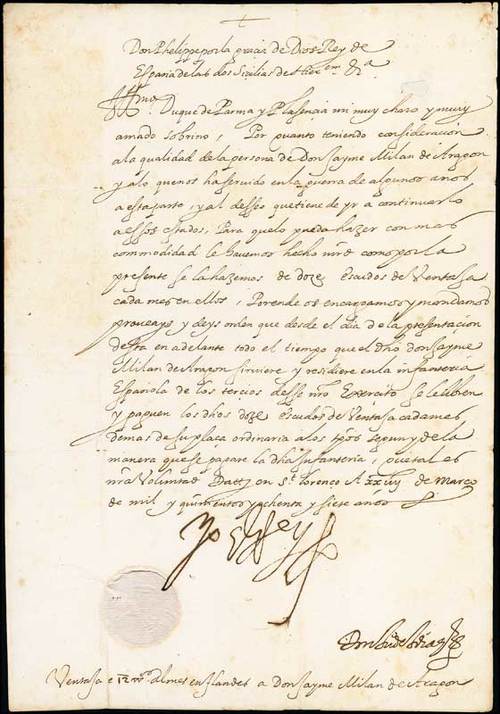 Don Phelippe por la gracia de Dios Rey de
España de las dos Sicilias de Hier.em &a
Duque de Parma y Plasencia mi muy charo y muy
amado sobrino, Por quanto teniendo consideracion
a la qualidad de la persona de Don Jayme Milan de Aragon
y a lo que nos ha seruido en la guerra de algunos años
a esta parte, y al desseo que tiene de yr a continuarlo
a essos estados, Para que lo pueda hazer con mas
commodidad le hauemos hecho mrd como por la
presente se la hazemos de doze escudos de Ventaja
cada mes en ellos, Por ende os encargamos y mandamos
proueays y deys orden que desde el dia de la presentacion
desta en adelante todo el tiempo que el dho Don Jayme
Milan de Aragon siruiere y residiere en la infanteria
Española de los tercios desse nro Exercito se le libren
y paguen los dhos doze escudos de Ventaja cada mes
demas de su plaça ordinaria a los tpos segun y de la
manera que se pagare la dha infanteria, que tal es
nra Voluntad Datt en St Lorenço A xxiiij de Março
de mil y quinientos y ochenta y siete años
Yo el Rey
Ventaja e 12 al mes en Flandes a Don Jayme Milan de Aragon